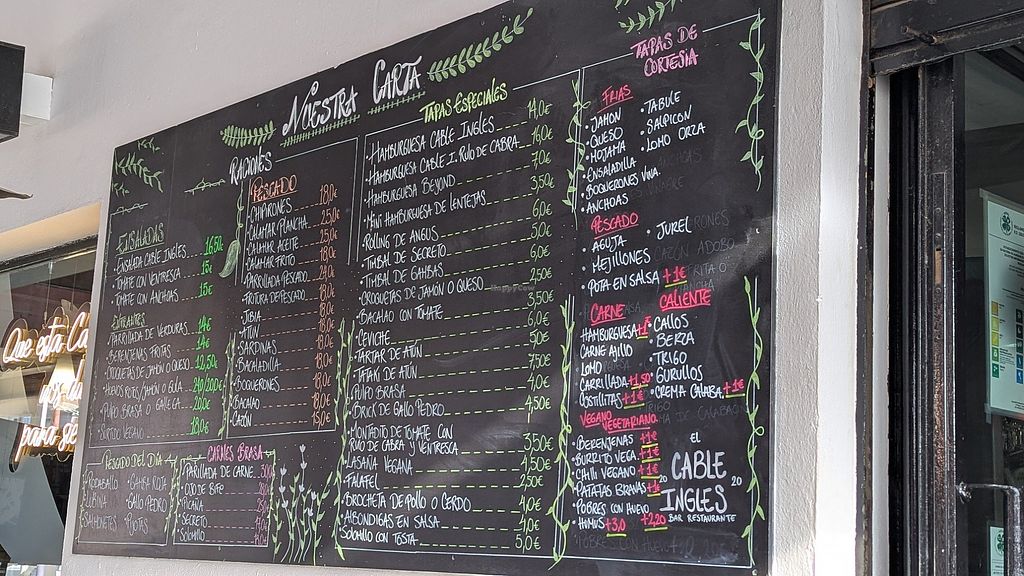 NUESTRA CARTA
RACIONES
ENSALADAS
ENSALADA CABLE INGLES 16,50€
TOMATE CON VENTRESCA 15€
TOMATE CON ANCHOAS 15€
ENTRANTES
PARRILLADA DE VERDURAS 14€
BERENJENAS FRITAS 14€
CROQUETAS DE JAMÓN O QUESO 12,50€
HUEVOS ROTOS, JAMÓN O GULA
PULPO BRASA O GALLEGA
SURTIDO VEGANO 18,0€
PESCADO
CHIPIRONES 18,0€
CALAMAR PLANCHA 25,0€
CALAMAR ACEITE 25,0€
CALAMAR FRITO
PARRILLADA PESCADO
FRITURA DE PESCADO 18,0€
JIBIA 18,0€
ATÚN 18,0€
SARDINAS 18,0€
BACALADILLA 18,0€
BOQUERONES 18,0€
BACALAO 18,0€
CAZÓN 15,0€
PESCADO DEL DÍA
RODABALLO
LUBINA
SALMONETES
GAMBA ROJA
GALLO PEDRO
CARNES BRASA
PARILLADA DE CARNE
OJO DE BIFE
PICAÑA
SECRETO
SOLOMILLO
TAPAS ESPECIALES
HAMBURGUESA CABLE INGLÉS 14,0€
HAMBURGUESA CABLE I. RULO DE CABRA 16,0€
HAMBURGUESA BEYOND 7,0€
MINI HAMBURGUESA DE LENTEJAS 3,50€
ROLLING DE ANGUS 6,0€
TIMBAL DE SECRETO 5,0€
TIMBAL DE GAMBAS 6,0€
CROQUETAS DE JAMON O QUESO 2,50€
BACALAO CON TOMATE 3,50€
CEVICHE 6,0€
TARTAR DE ATÚN 9,0€
TATAKI DE ATÚN 7,50€
PULPO BRASA 4,0€
BRICK DE GALLO PEDRO 4,50€
MONTADITO DE TOMATE CON
RULO DE CABRA Y VENTRESCA 3,50€
LASAÑA VEGANA 4,50€
FALAFEL 2,50€
BROCHETA DE POLLO O CERDO 4,0€
ALBONDIGAS EN SALSA 4,0€
SOLOMILLO CON TOSTA 5,0€
TAPAS DE
CORTESIA
FRIAS
JAMON
QUESO
MOJAMA
ENSALADILLA
BOQUERONES VINA.
ANCHOAS
TABULE
SALPICON
LOMO ORZA
PESCADO
AGUJA
MEJILLONES
POTA EN SALSA +1€
JUREL
CARNE
HAMBURGUESA
CARNE AJILLO
LOMO
CARRILLADA +1,50
COSTILLITAS +1€
CALIENTE
CALLOS
BERZA
TRIGO
GURULLOS
CREMA CALABA. +1€
VEGANO
VEGETARIANO
BERENJENAS +1€
BURRITO VEGA. +1€
CHILLI VEGANO +1€
PATATAS BRAVAS +1€
POBRES CON HUEVO +2,20
HUMUS +3,0
EL
CABLE
20 INGLES 20
BAR RESTAURANTE
Que está
para se